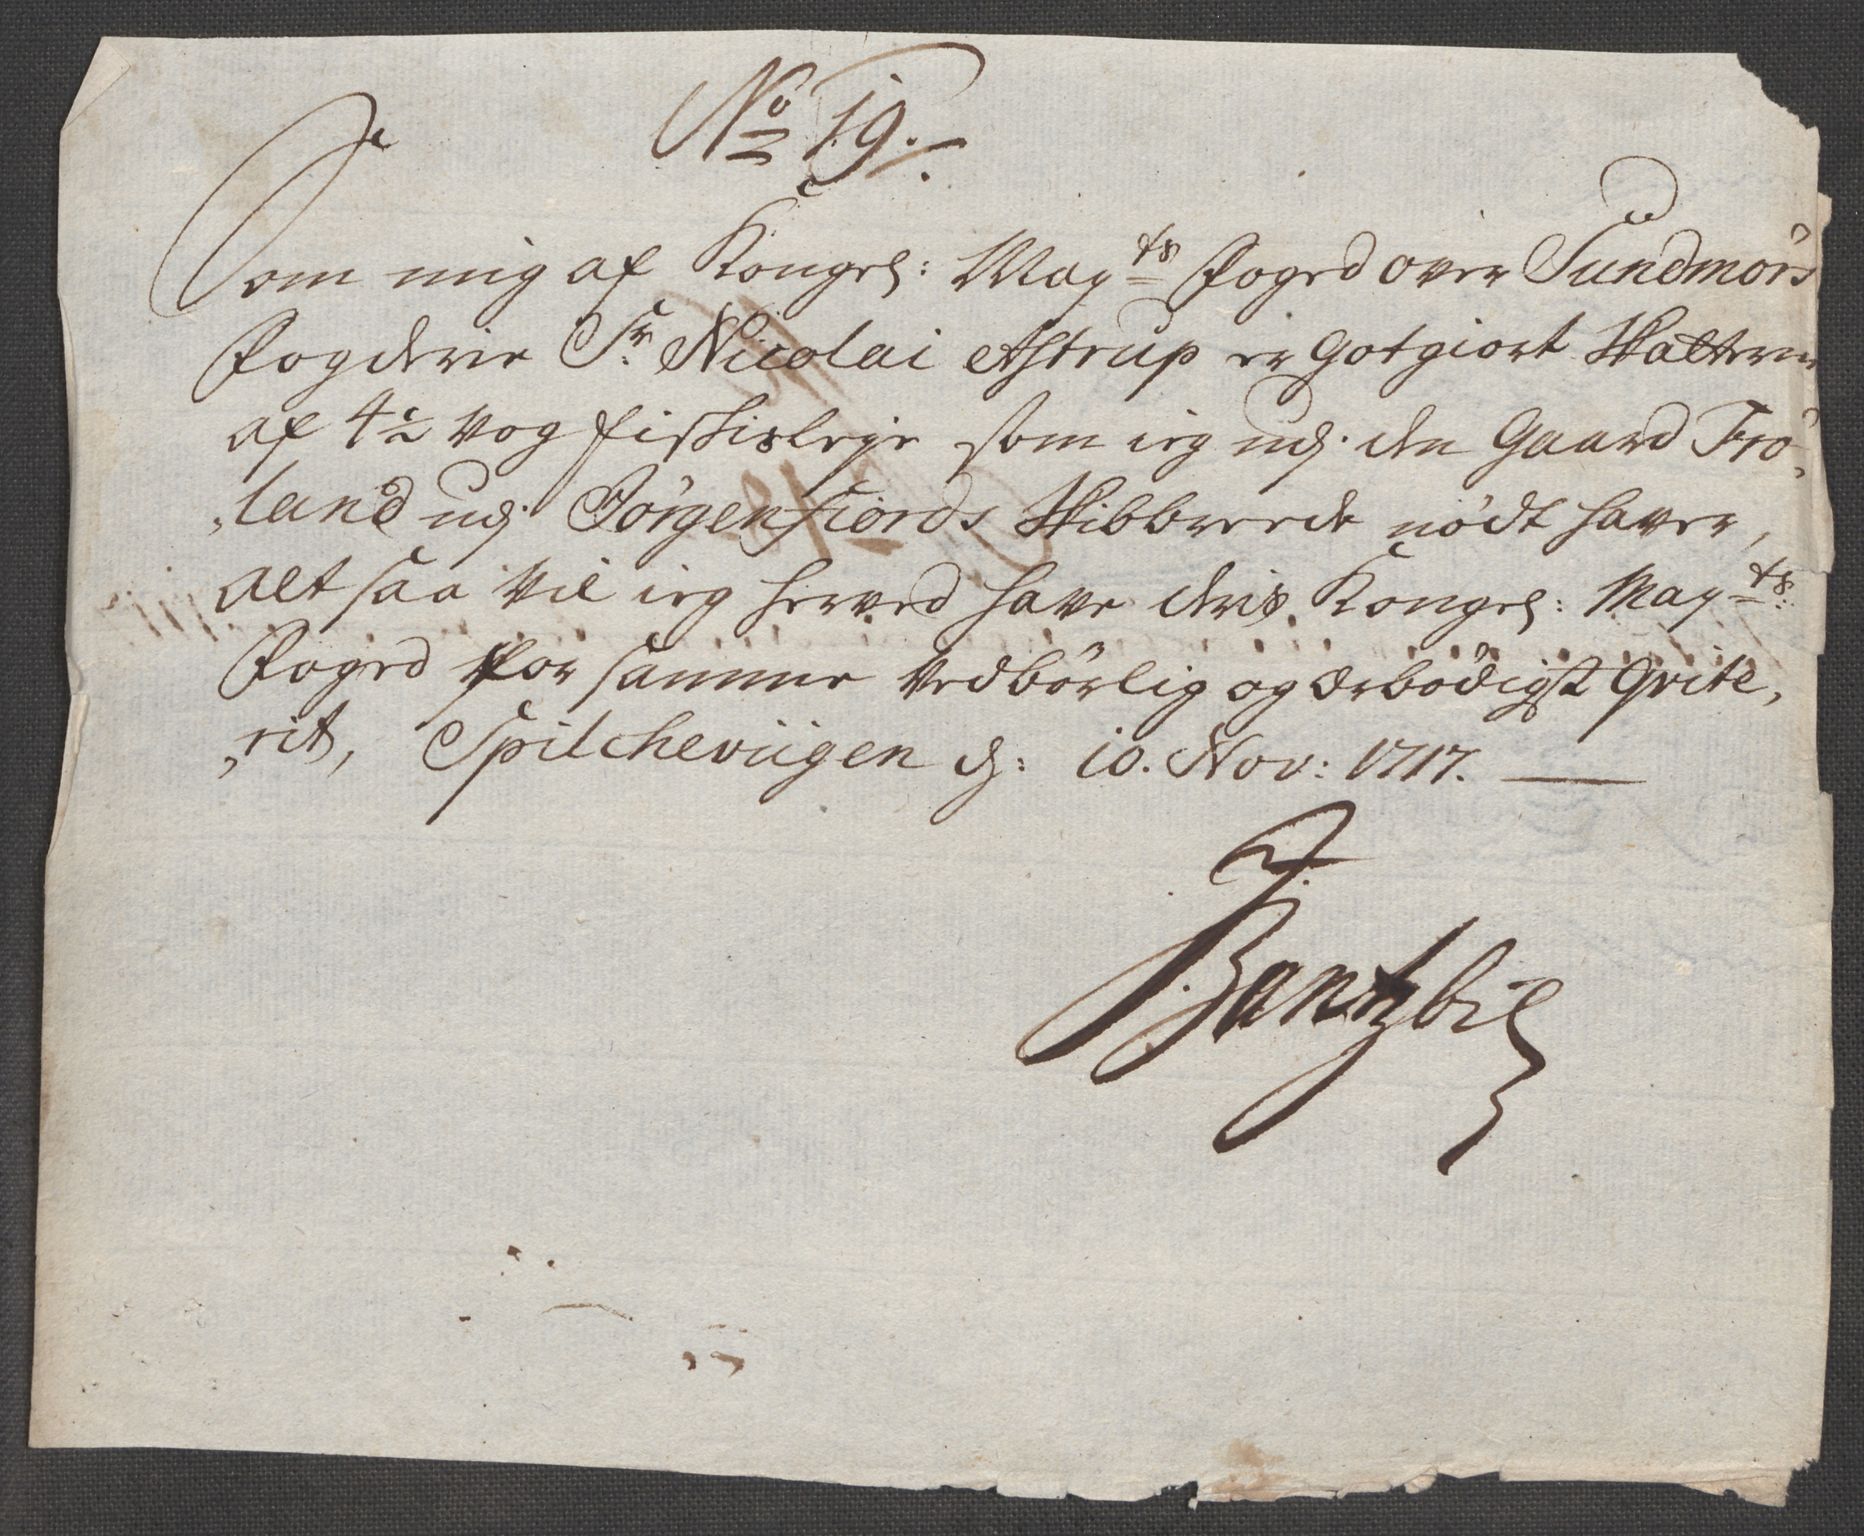 No 19.
Som mig af Kongel: Mayts Foged over Sundmörs
Fogderie Sr Nicolai Astrup er gotgiort Skatterne
af 4½ vog fiskisleje som ieg udj den Gaard Frö-
land udj Jörgenfiords Skibbreede nödt haver,
alt saa vil ieg herved have Deris Kongel: Mayts:
Foged for samme vedbörlig og ærbödigst qvite,
,rit, Spilcheviigen d: 10. Nov: 1717.
Bantzbil